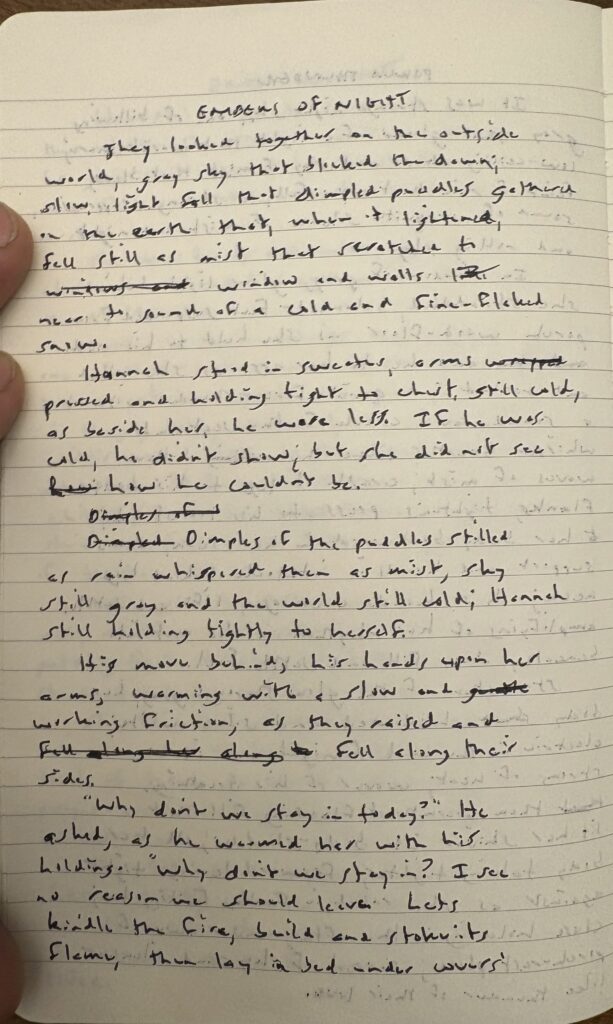 EMBERS OF NIGHT
They looked together on the outside
world, gray sky that blocked the down;
slow, light fall that dimpled puddles gathered
in the earth that, when it lightened,
fell still as mist that scratched to
windows and window and walls
near to sound of a cold and fine-flaked
snow.
Hannah stood in sweater, arms wrapped
pressed and holding tight to chest, still cold,
as beside her, he wore less. If he was
cold, he didn't show; but she did not see
how how he couldn't be.
Dimples of
Dimpled Dimples of the puddles stilled
as rain whispered then as mist, sky
still gray and the world still cold; Hannah
still holding tightly to herself.
His move behind, his hands upon her
arms, warming with a slow and gentle
working friction, as they raised and
fell along her along fell along their
sides.
"Why don't we stay in today?" He
asked, as he warmed her with his
holding. "Why don't we stay in? I see
no reason we should leave. Lets
kindle the fire, build and stoke its
flame, then lay in bed under covers